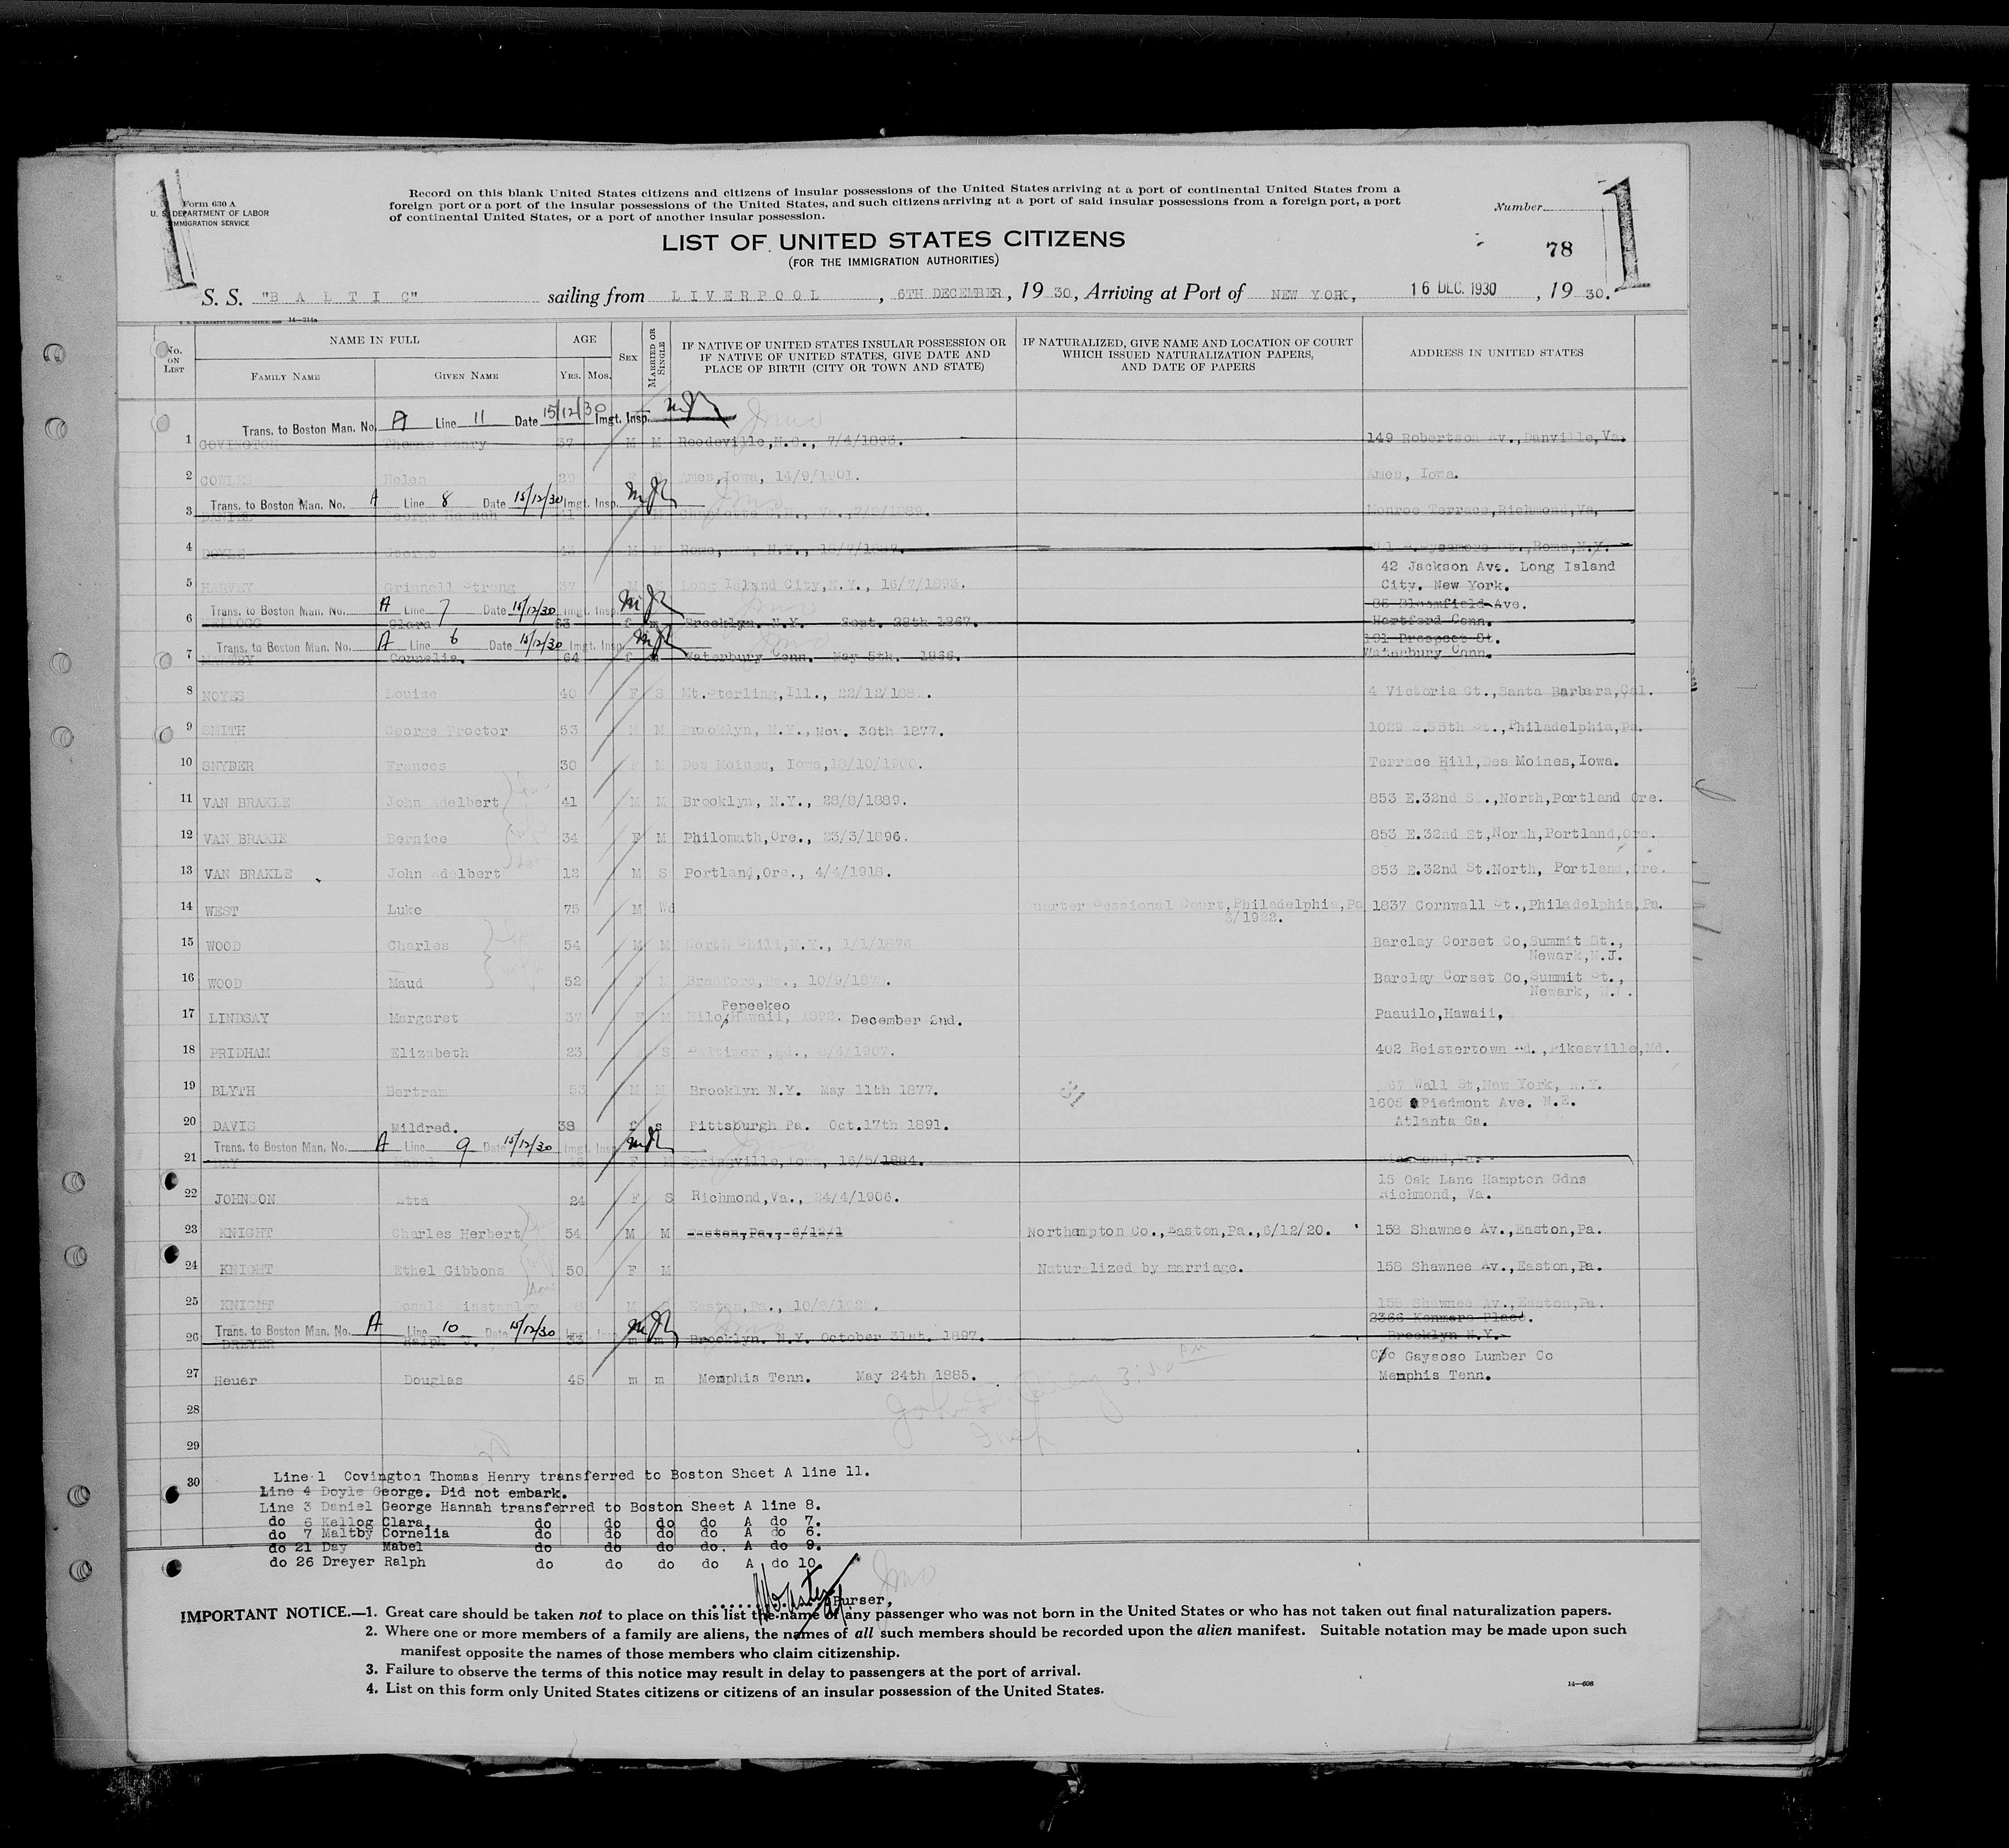 Form 630 A
U. S. DEPARTMENT OF LABOR
IMMIGRATION SERVICE
Record on this blank United States citizens and citizens of insular possessions of the United States arriving at a port of continental United States from a
foreign port or a port of the insular possessions of the United States, and such citizens arriving at a port of said insular possessions from a foreign port, a port
of continental United States, or a port of another insular possession.
Number
1
1
78
LIST OF UNITED STATES CITIZENS
(FOR THE IMMIGRATION AUTHORITIES)
S. S. "BALTIC" sailing from LIVERPOOL, 6TH DECEMBER, 1930, Arriving at Port of NEW YORK, 16 DEC. 1930, 1930.
14—214a
No. ON LIST
NAME IN FULL
FAMILY NAME
GIVEN NAME
AGE
YRS. MOS.
SEX
MARRIED OR SINGLE
IF NATIVE OF UNITED STATES INSULAR POSSESSION OR
IF NATIVE OF UNITED STATES, GIVE DATE AND
PLACE OF BIRTH (CITY OR TOWN AND STATE)
IF NATURALIZED, GIVE NAME AND LOCATION OF COURT
WHICH ISSUED NATURALIZATION PAPERS,
AND DATE OF PAPERS
ADDRESS IN UNITED STATES
Trans. to Boston Man. No. A Line 11 Date 15/12/30 Imgt. Insp.
1 COVINGTON Thomas Henry 37 M M Reedeville, N.C., 7/4/1893. 149 Robertson Av., Danville, Va.
2 COWLES Helen 29 F Ames, Iowa, 14/9/1901. Ames, Iowa.
Trans. to Boston Man. No. A Line 8 Date 15/12/30 Imgt. Insp.
3 DANIEL George Hannah 41 Va., 7/9/1889. Monroe Terrace, Richmond, Va,
4 DOYLE George M M Rome, N.Y., Sycamore St., Rome, N.Y.
5 HARVEY Grinnell Strong 37 M S Long Island City, N.Y., 16/7/1893. 42 Jackson Ave. Long Island
City. New York.
Trans. to Boston Man. No. A Line 7 Date 15/12/30 Imgt. Insp.
6 KELLOGG Clara 63 f m Brooklyn. N.Y. Sept. 28th 1867. 85 Bloomfield Ave.
Hartford Conn.
Trans. to Boston Man. No. A Line 6 Date 15/12/30 Imgt. Insp.
7 MALTBY Cornelia. 64 f Waterbury Conn. May 5th. 1866. 191 Prospect St.
Waterbury Conn.
8 NOYES Louise 40 F S Mt. Sterling, Ill., 22/12/188 . 4 Victoria Ct., Santa Barbara, Cal.
9 SMITH George Proctor 53 M M Brooklyn, N.Y., Nov. 30th 1877. 1029 S.55th St., Philadelphia, Pa.
10 SNYDER Frances 30 F M Des Moines, Iowa, 18/10/1900. Terrace Hill, Des Moines, Iowa.
11 VAN BRAKLE John Adelbert 41 M M Brooklyn, N.Y., 28/8/1889. 853 E.32nd S ., North, Portland Ore.
12 VAN BRAKLE Bernice 34 F M Philomath, Ore., 23/3/1896. 853 E.32nd St, North, Portland, Ore.
13 VAN BRAKLE John Adelbert 12 M S Portland, Ore., 4/4/1918. 853 E.32nd St. North, Portland, Ore.
14 WEST Luke 75 M Wd uarter Sessional Court, Philadelphia, Pa 1837 Cornwall St., Philadelphia, Pa.
3/1922.
15 WOOD Charles 54 M M North Chili, N.Y., 1/1/1876 Barclay Corset Co, Summit St.,
Newark, N.J.
16 WOOD Maud 52 F M Bradford, Pa., 10/9/187 . Barclay Corset Co, Summit St.,
Newark, N.J.
Pepeekeo
17 LINDSAY Margaret 37 F M Hilo, Hawaii, 1892. December 2nd. Paauilo, Hawaii,
18 PRIDHAM Elizabeth 23 S Baltimore, Md., 8/4/1907. 402 Reistertown Rd., Pikesville, Md.
19 BLYTH Bertram 53 M M Brooklyn N.Y. May 11th 1877. 67 Wall St, New York, N.Y.
31
20 DAVIS Mildred. 38 f s Pittsburgh Pa. Oct. 17th 1891. 1605 Piedmont Ave. N.E.
Atlanta Ga.
Trans. to Boston Man. No. A Line 9 Date 15/12/30 Imgt. Insp.
21 DAY Mabel 46 F M Springville, Iowa, 16/5/1884. Richmond, Va.
22 JOHNSON Etta 24 F S Richmond, Va., 24/4/1906. 15 Oak Lane Hampton Gdns
Richmond, Va.
23 KNIGHT Charles Herbert 54 M M Easton, Pa., 6/12/1 Northampton Co., Easton, Pa., 6/12/20. 158 Shawnee Av., Easton, Pa.
24 KNIGHT Ethel Gibbons 50 F M Naturalized by marriage. 158 Shawnee Av., Easton, Pa.
25 KNIGHT Donald Winstanley 8 M S Easton, Pa., 10/8/1922. 158 Shawnee Av., Easton, Pa.
Trans. to Boston Man. No. A Line 10 Date 15/12/30
26 DREYER Ralph J. 33 m m Brooklyn. N.Y. October 31st. 1897. 2366 Kenmore Place.
Brooklyn N.Y.
27 Heuer Douglas 45 m m Memphis Tenn. May 24th 1885. C/o Gaysoso Lumber Co
Memphis Tenn.
28
29
30
Line 1 Covington Thomas Henry transferred to Boston Sheet A line 11.
Line 4 Doyle George. Did not embark.
Line 3 Daniel George Hannah transferred to Boston Sheet A line 8.
do 6 Kellog Clara. do do do do A do 7.
do 7 Maltby Cornelia do do do do A do 6.
do 21 Day Mabel do do do do. A do 9.
do 26 Dreyer Ralph do do do do A do 10.
Purser,
IMPORTANT NOTICE.—1. Great care should be taken not to place on this list the name of any passenger who was not born in the United States or who has not taken out final naturalization papers.
2. Where one or more members of a family are aliens, the names of all such members should be recorded upon the alien manifest. Suitable notation may be made upon such
manifest opposite the names of those members who claim citizenship.
3. Failure to observe the terms of this notice may result in delay to passengers at the port of arrival.
4. List on this form only United States citizens or citizens of an insular possession of the United States.
14—608